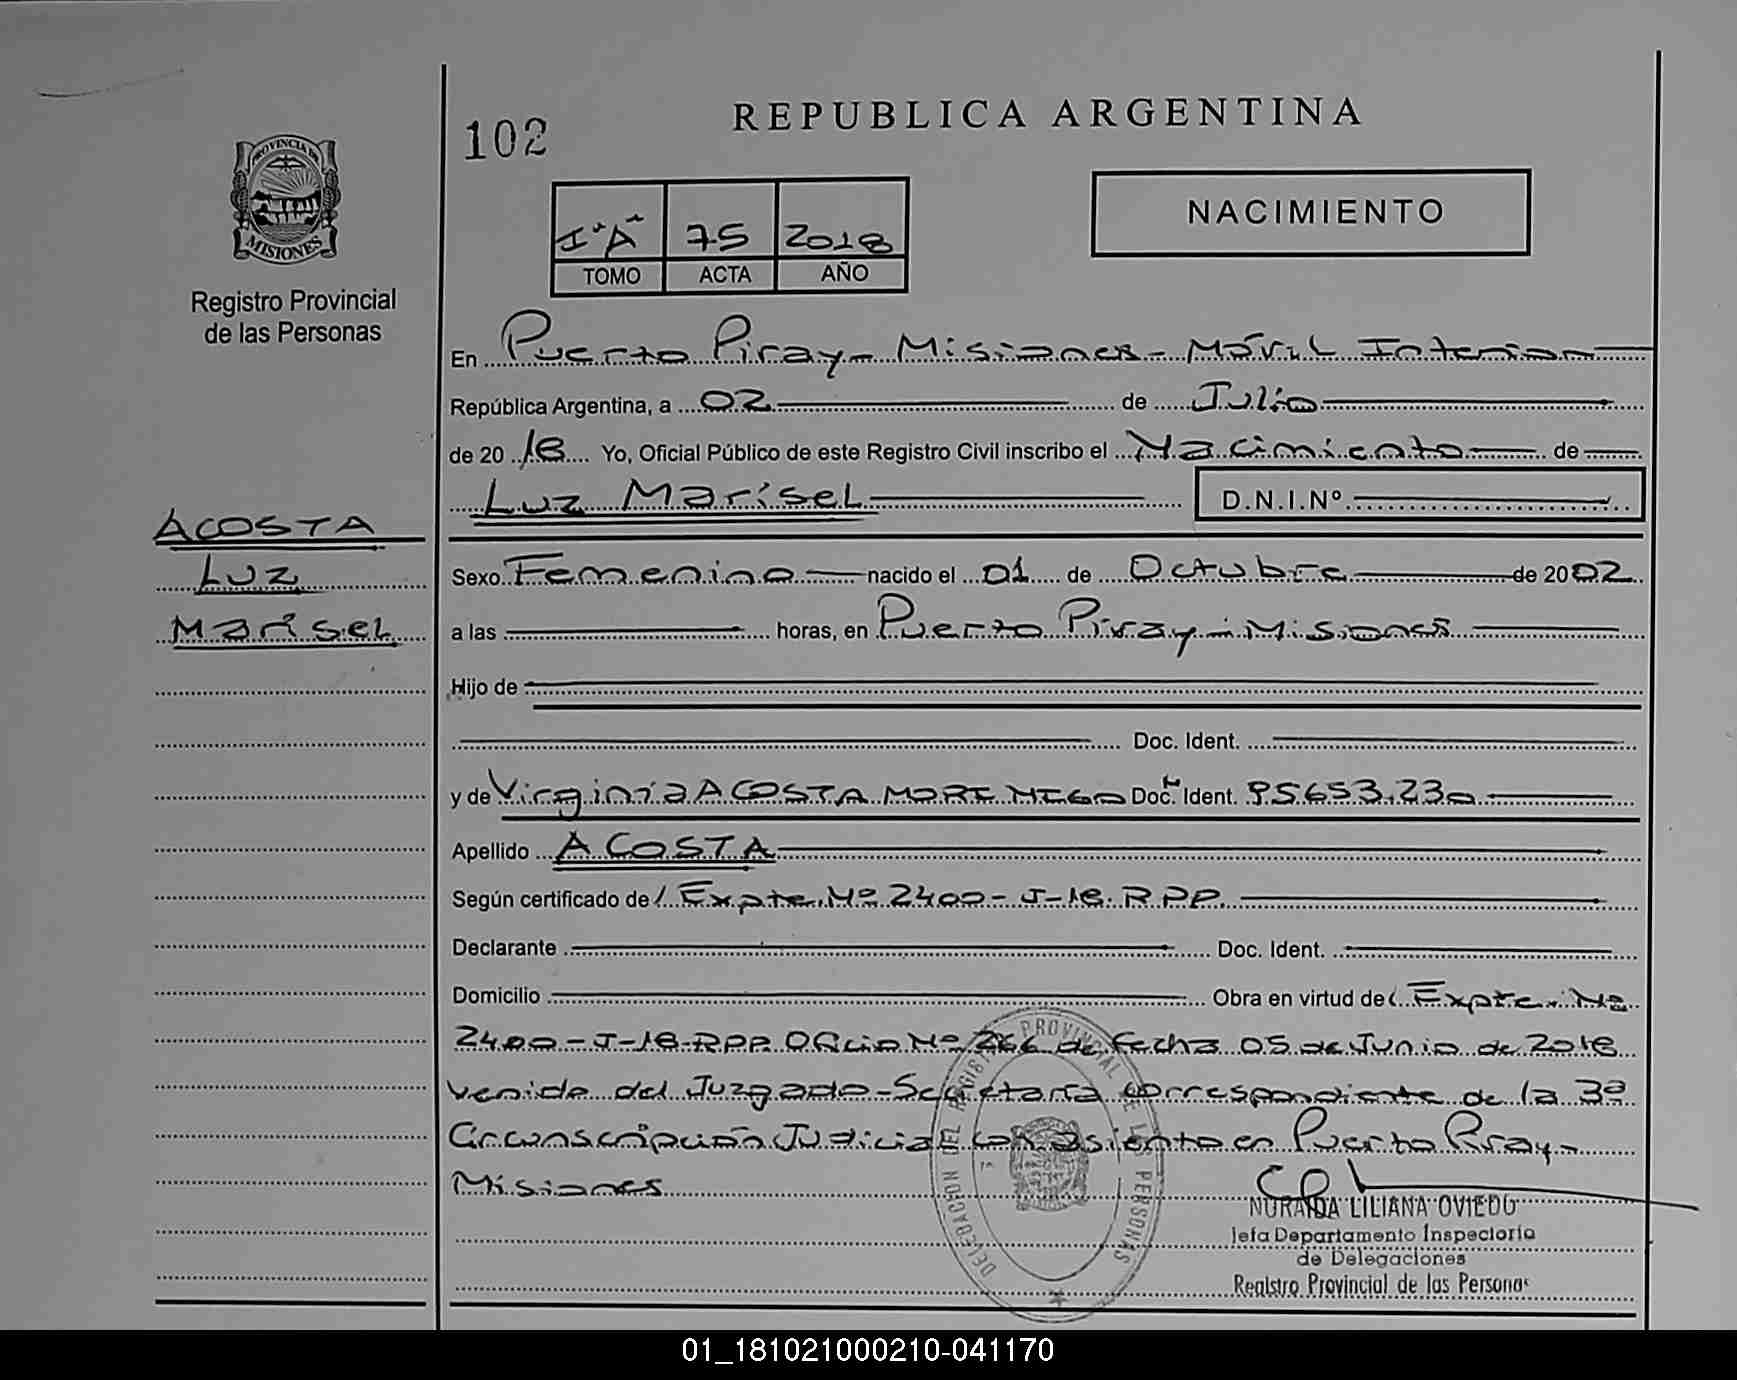 102
REPUBLICA ARGENTINA
NACIMIENTO
PROVINCIA DE
MISIONES
Registro Provincial
de las Personas
I°"A" 75 2018
TOMO ACTA AÑO
En Puerto Piray - Misiones - Móvil Interior
República Argentina, a 02 de Julio
de 20 18 Yo, Oficial Público de este Registro Civil inscribo el Nacimiento de
Luz Marisel D.N.I.Nº
ACOSTA
Luz
Marisel
Sexo Femenino nacido el 01 de Octubre de 2002
a las horas, en Puerto Piray - Misiones
Hijo de
Doc. Ident.
y de Virginia ACOSTA Doc. Ident. 95.653.230
Apellido ACOSTA
Según certificado de Expte. Nº 2400-J-18. RPP.
Declarante Doc. Ident.
Domicilio Obra en virtud de Expte. Nº
2400-J-18-RPP. Oficio Nº 266 de fecha 05 de Junio de 2018
venido del Juzgado-Secretaría correspondiente de la 3ª
Circunscripción Judicial con asiento en Puerto Piray-
Misiones
DELEGACION DEL REGISTRO PROVINCIAL DE LAS PERSONAS
NURAIDA LILIANA OVIEDO
Jefa Departamento Inspectoria
de Delegaciones
Registro Provincial de las Personas
01_181021000210-041170